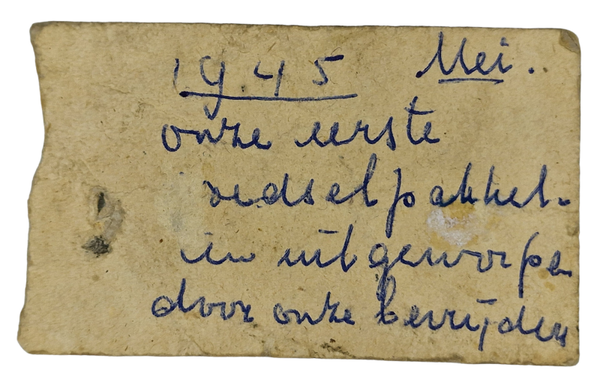 1945 Mei..
onze eerste
voedselpakket.
in uitgeworpen
door onze bevrijders